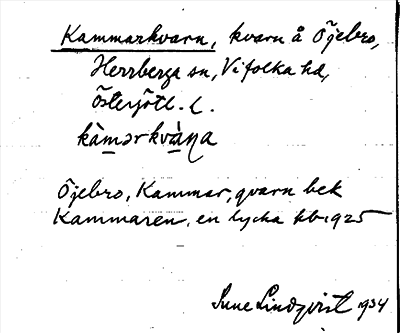 Kammarkvarn, kvarn å Öjebro,
Herrberga sn, Vifolka hd,
Östergötl. l.
kàmərkvàṇa
Öjebro, Kammar, qvarn bek
Kammaren, en lycka hb 1925
Sune Lindqvist 1934